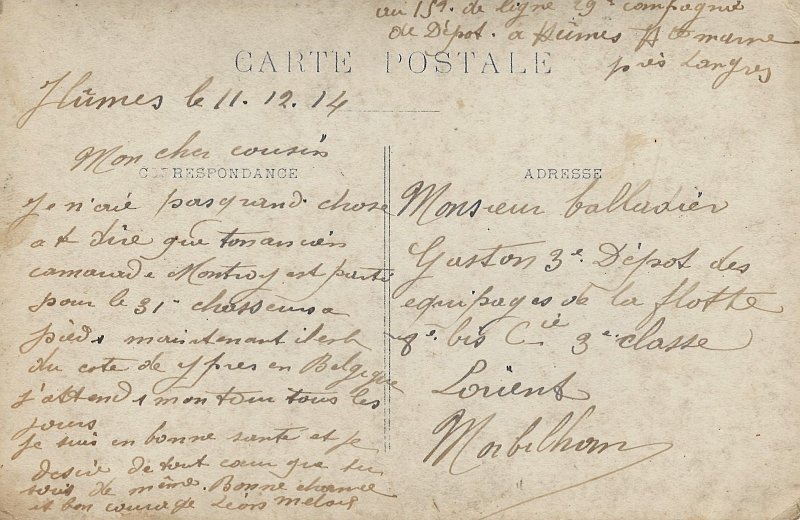 au 151. de ligne 29e compagnie
de Dépot. a Hûmes Hte marne
près Langres
CARTE POSTALE
Hûmes le 11. 12. 14
Mon cher cousin
CORRESPONDANCE
Je n'aie pas grand. chose
a te dire que ton ancien
camarade Montroy est parti
pour le 31e chasseurs a
pieds maintenant il est
du cote de ypres en Belgique
j'attends mon tour tous les
jours
je suis en bonne santé et je
desire de tout cœur que tu
sois de même. Bonne chance
et bon courage Léon
ADRESSE
Monsieur balladier
Gaston 3e. Dépot des
equipages de la flotte
8e. bis Cie 3e. classe
Lorient
Morbilhan